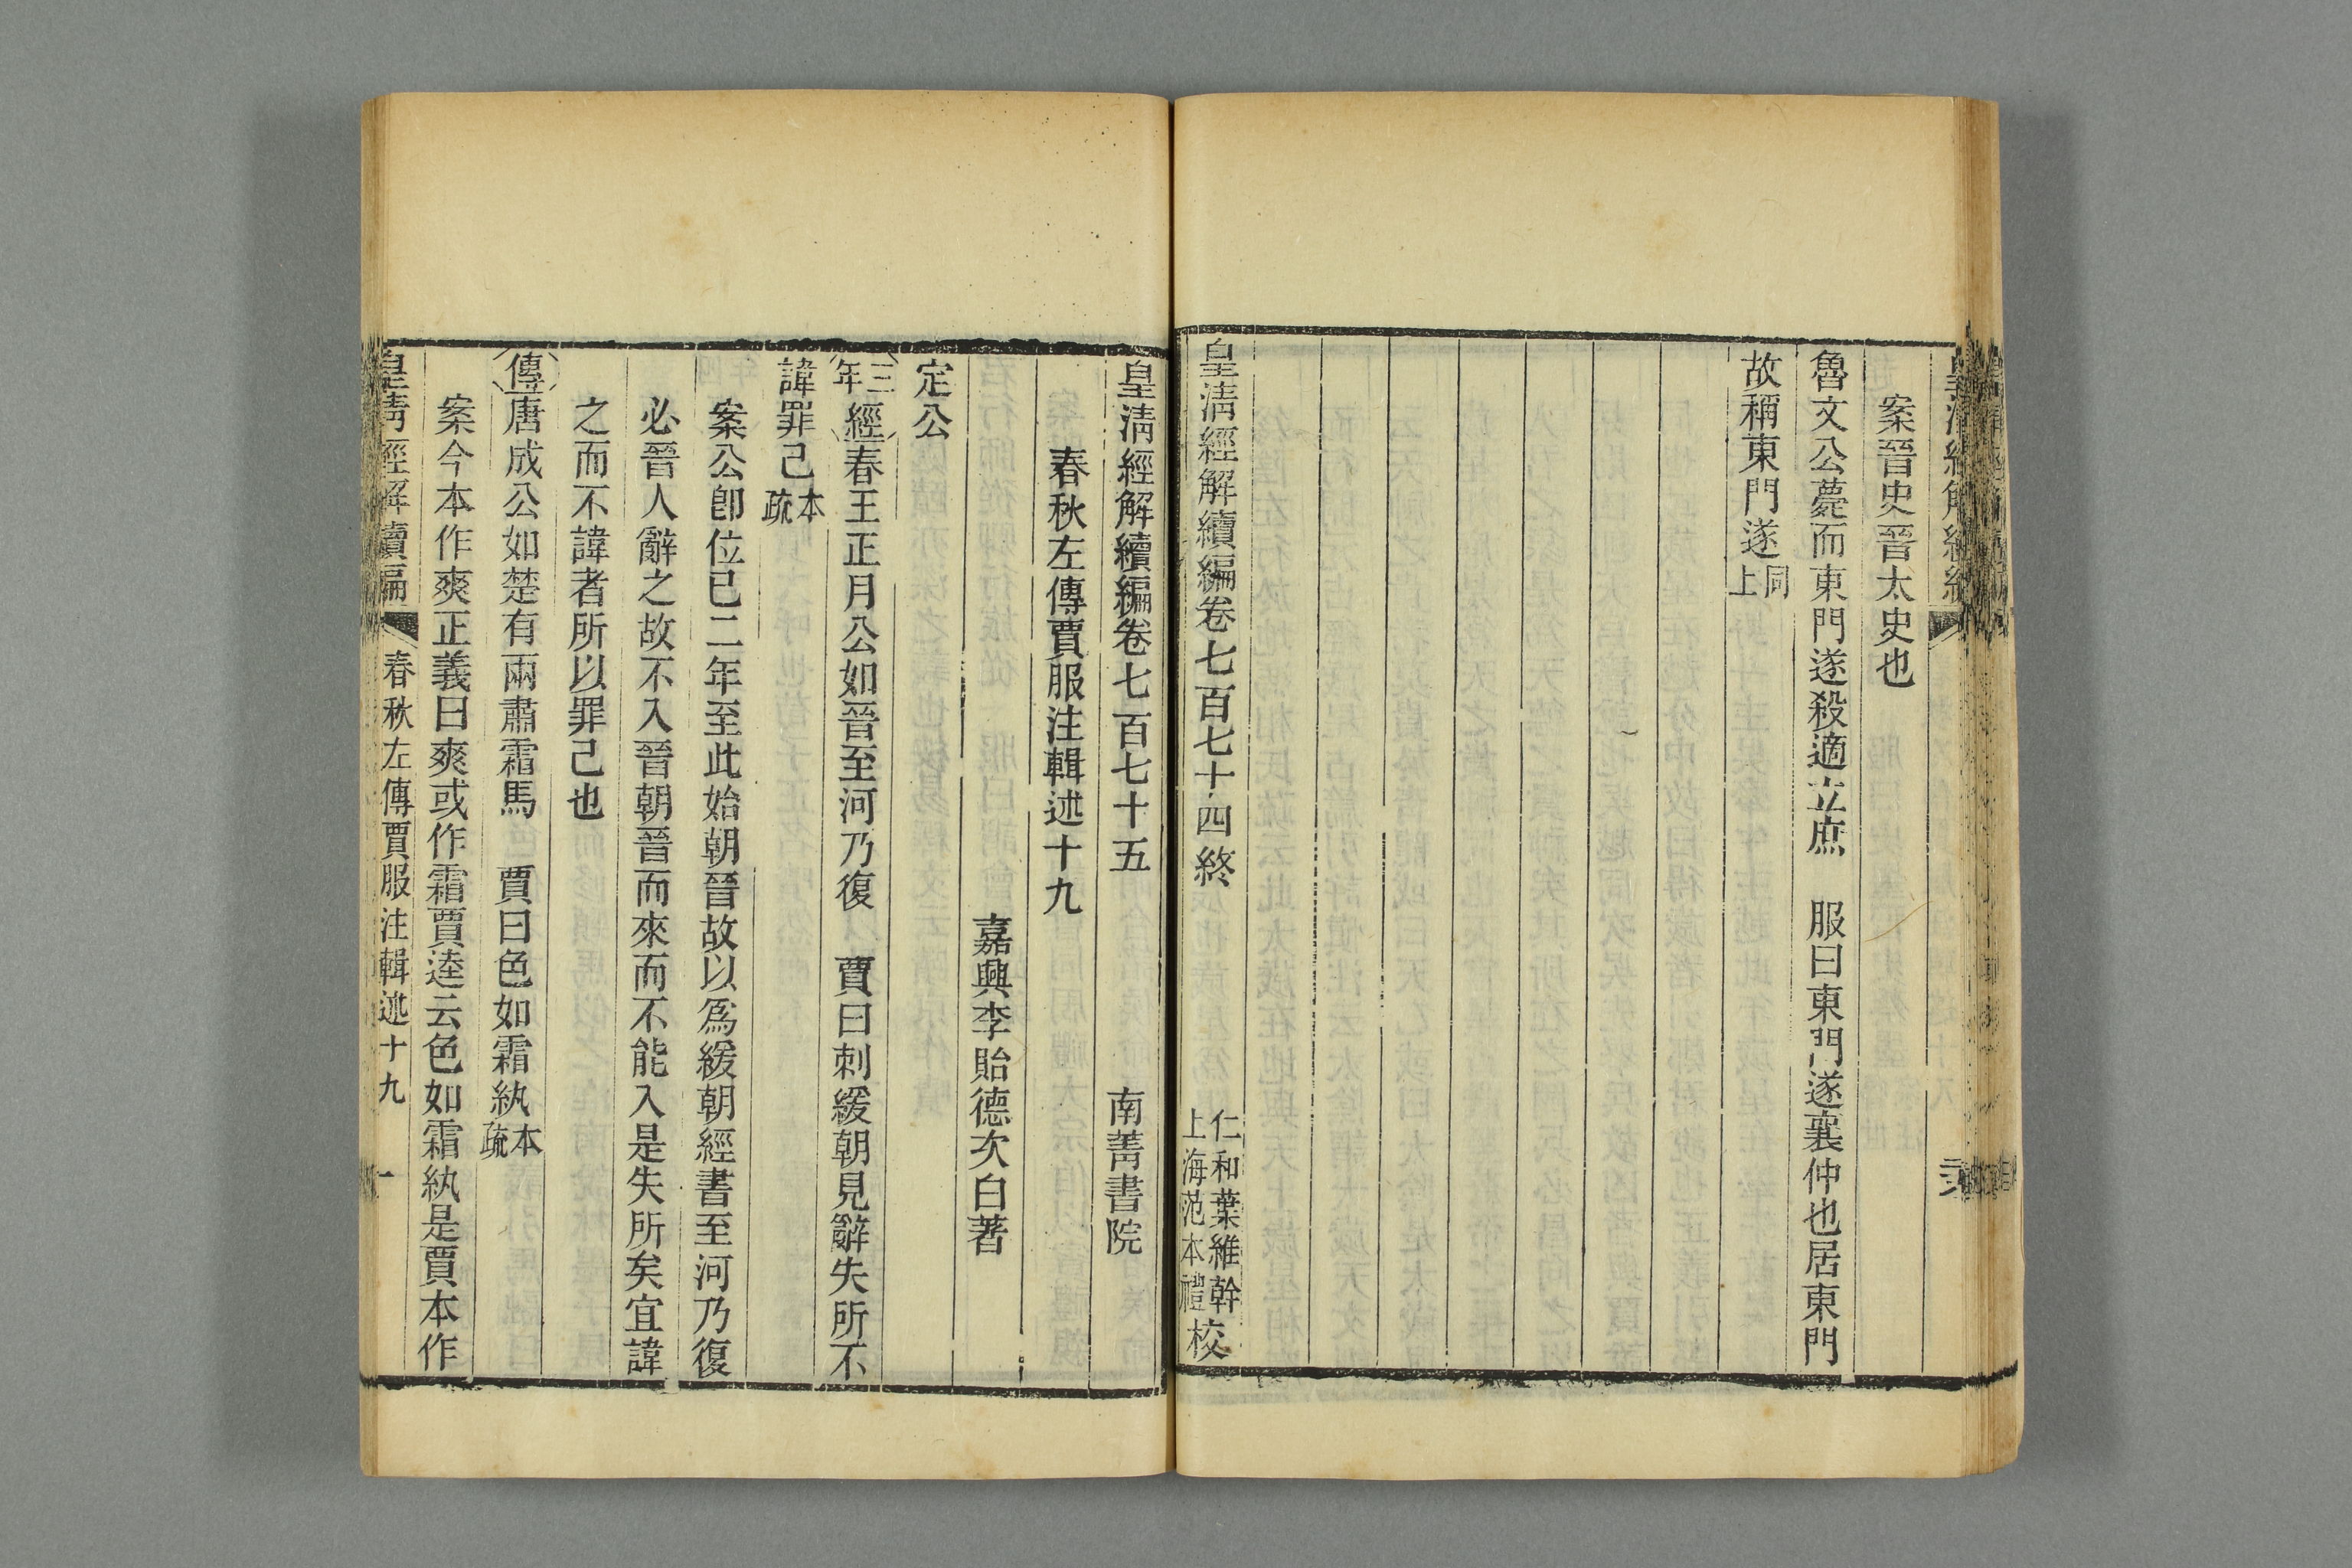 案晉史晉太史也
魯文公薨而東門遂殺適立庶　服曰東門遂襄仲也居東門
故稱東門遂同上
皇淸經解續編卷七百七十四終
仁和葉維幹
上海范本禮校
皇淸經解續編卷七百七十五　南菁書院
春秋左傳賈服注輯述十九
嘉興李貽德次白著
定公
三年經春王正月公如晉至河乃復　賈曰刺緩朝見辭失所不
諱罪己本疏
案公卽位已二年至此始朝晉故以爲緩朝經書至河乃復
必晉人辭之故不入晉朝晉而來而不能入是失所矣宜諱
之而不諱者所以罪己也
傳唐成公如楚有兩肅霜馬　賈曰色如霜紈本疏
案今本作爽正義曰爽或作霜賈逵云色如霜紈是賈本作
皇淸經解續編　春秋左傳賈服注輯述十九　一